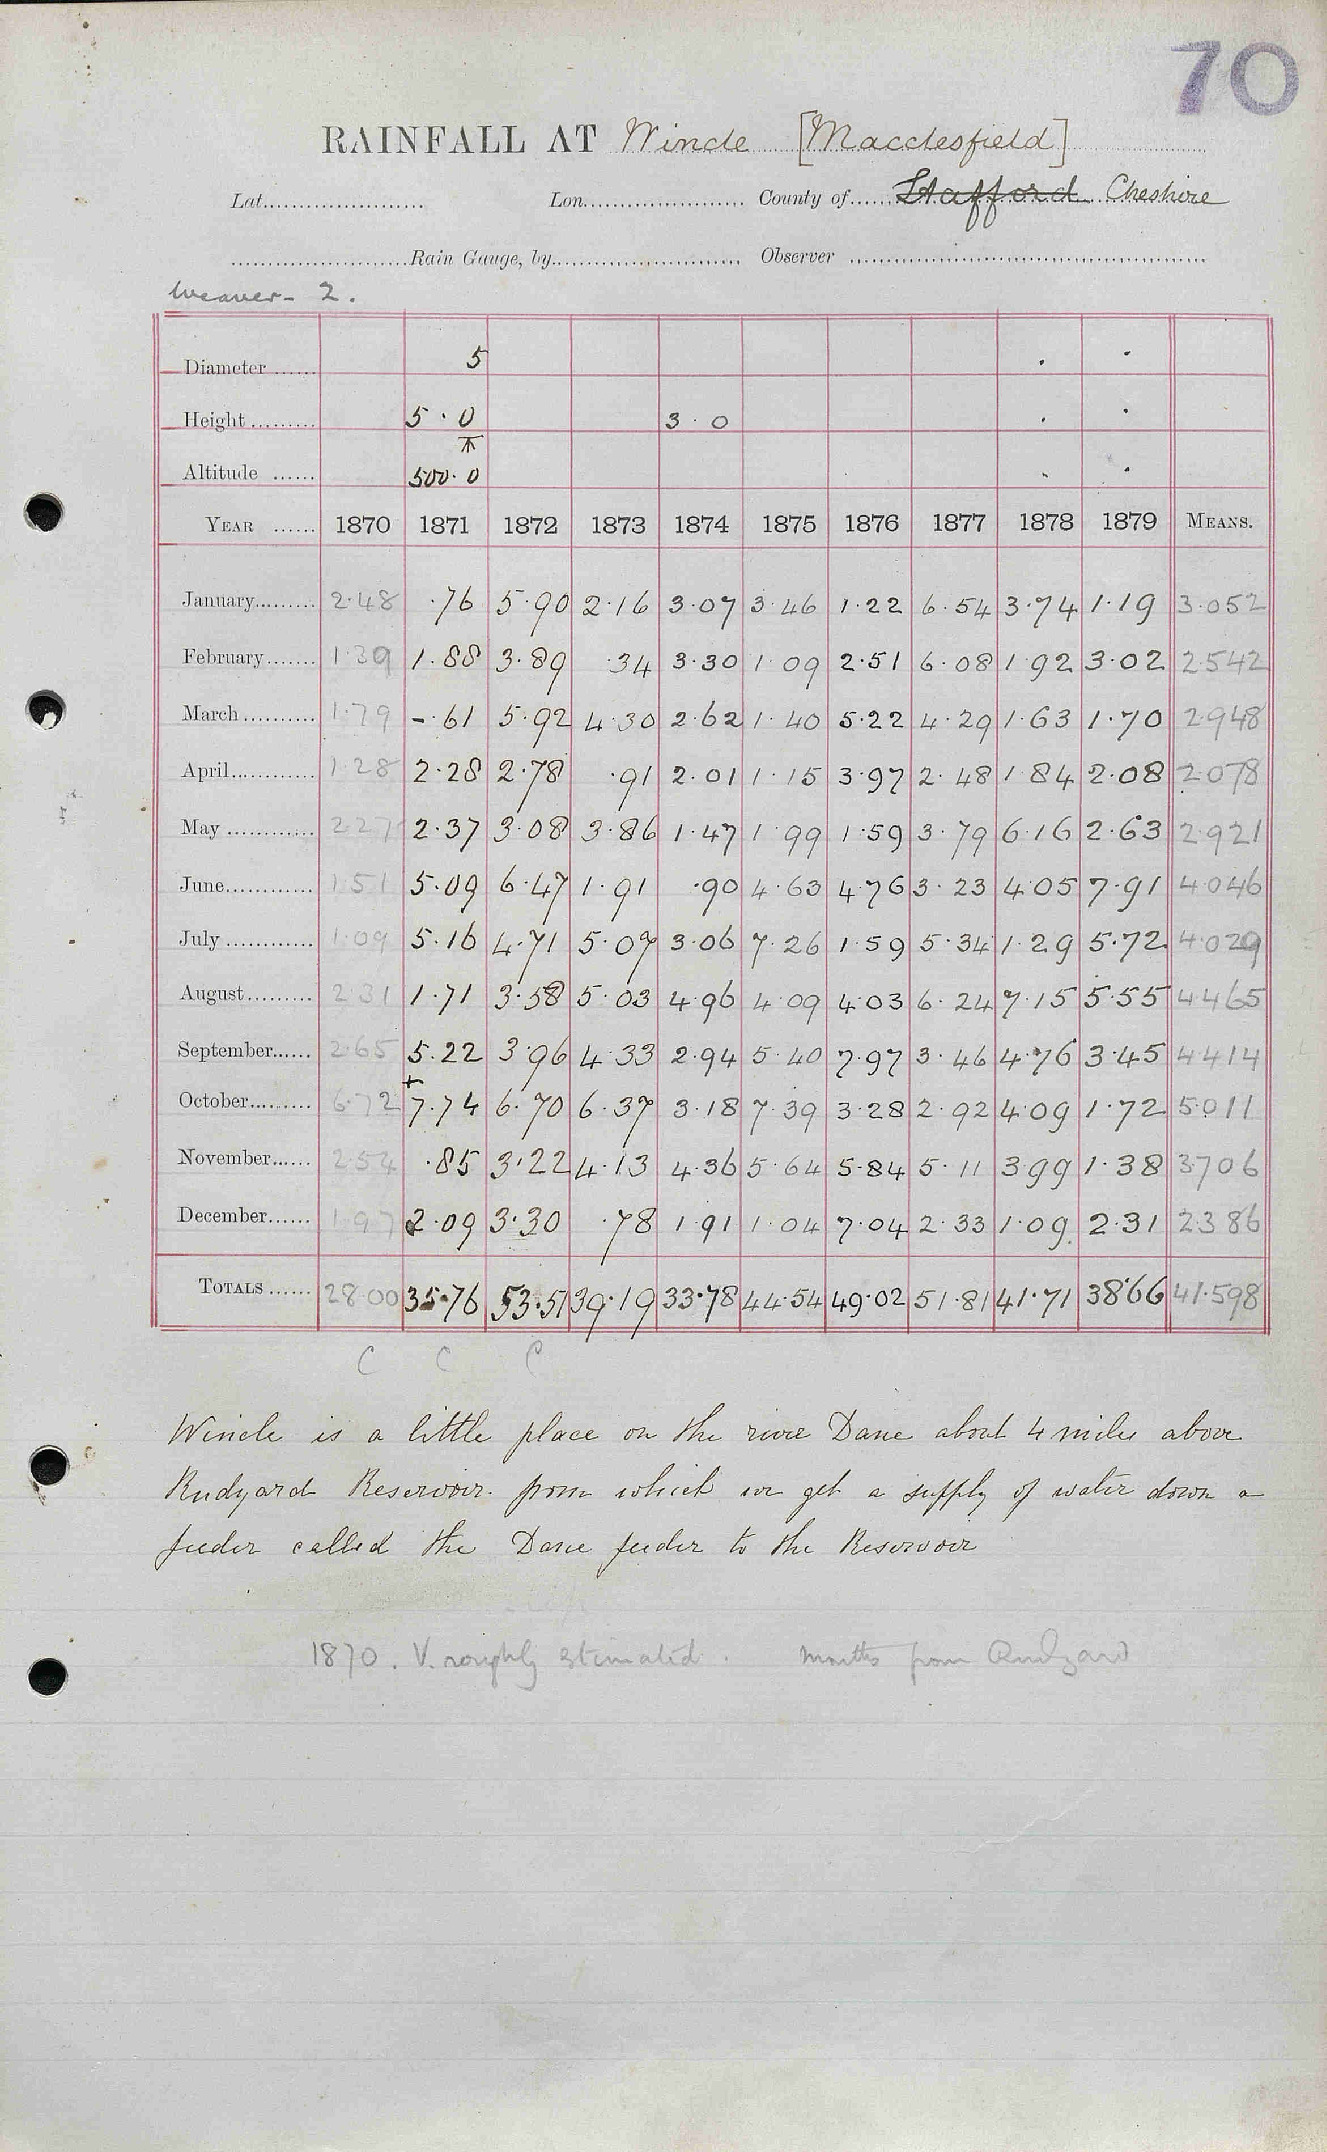 70
RAINFALL AT Wincle [Macclesfield]
Lat. Lon. County of Stafford Cheshire
Rain Gauge, by Observer
Weaver - 2.
Diameter 5 . .
Height 5.0 3.0 . .
Altitude 500.0 . .
YEAR 1870 1871 1872 1873 1874 1875 1876 1877 1878 1879 MEANS.
January 2.48 .76 5.90 2.16 3.07 3.46 1.22 6.54 3.74 1.19 3.052
February 1.39 1.88 3.89 .34 3.30 1.09 2.51 6.08 1.92 3.02 2.542
March 1.79 -.61 5.92 4.30 2.62 1.40 5.22 4.29 1.63 1.70 2.948
April 1.28 2.28 2.78 .91 2.01 1.15 3.97 2.48 1.84 2.08 2.078
May 2.27 2.37 3.08 3.86 1.47 1.99 1.59 3.79 6.16 2.63 2.921
June 1.51 5.09 6.47 1.91 .90 4.63 4.76 3.23 4.05 7.91 4.046
July 1.09 5.16 4.71 5.07 3.06 7.26 1.59 5.34 1.29 5.72 4.029
August 2.31 1.71 3.58 5.03 4.96 4.09 4.03 6.24 7.15 5.55 4.465
September 2.65 5.22 3.96 4.33 2.94 5.40 7.97 3.46 4.76 3.45 4.414
October 6.72 7.74 6.70 6.37 3.18 7.39 3.28 2.92 4.09 1.72 5.011
November 2.54 .85 3.22 4.13 4.36 5.64 5.84 5.11 3.99 1.38 3.706
December 1.97 2.09 3.30 .78 1.91 1.04 7.04 2.33 1.09 2.31 2.386
TOTALS 28.00 35.76 53.51 39.19 33.78 44.54 49.02 51.81 41.71 38.66 41.598
C C C
Wincle is a little place on the river Dane about 4 miles above
Rudyard Reservoir from which we get a supply of water down a
feeder called the Dane feeder to the Reservoir
1870. V. roughly estimated. Months from Rudyard